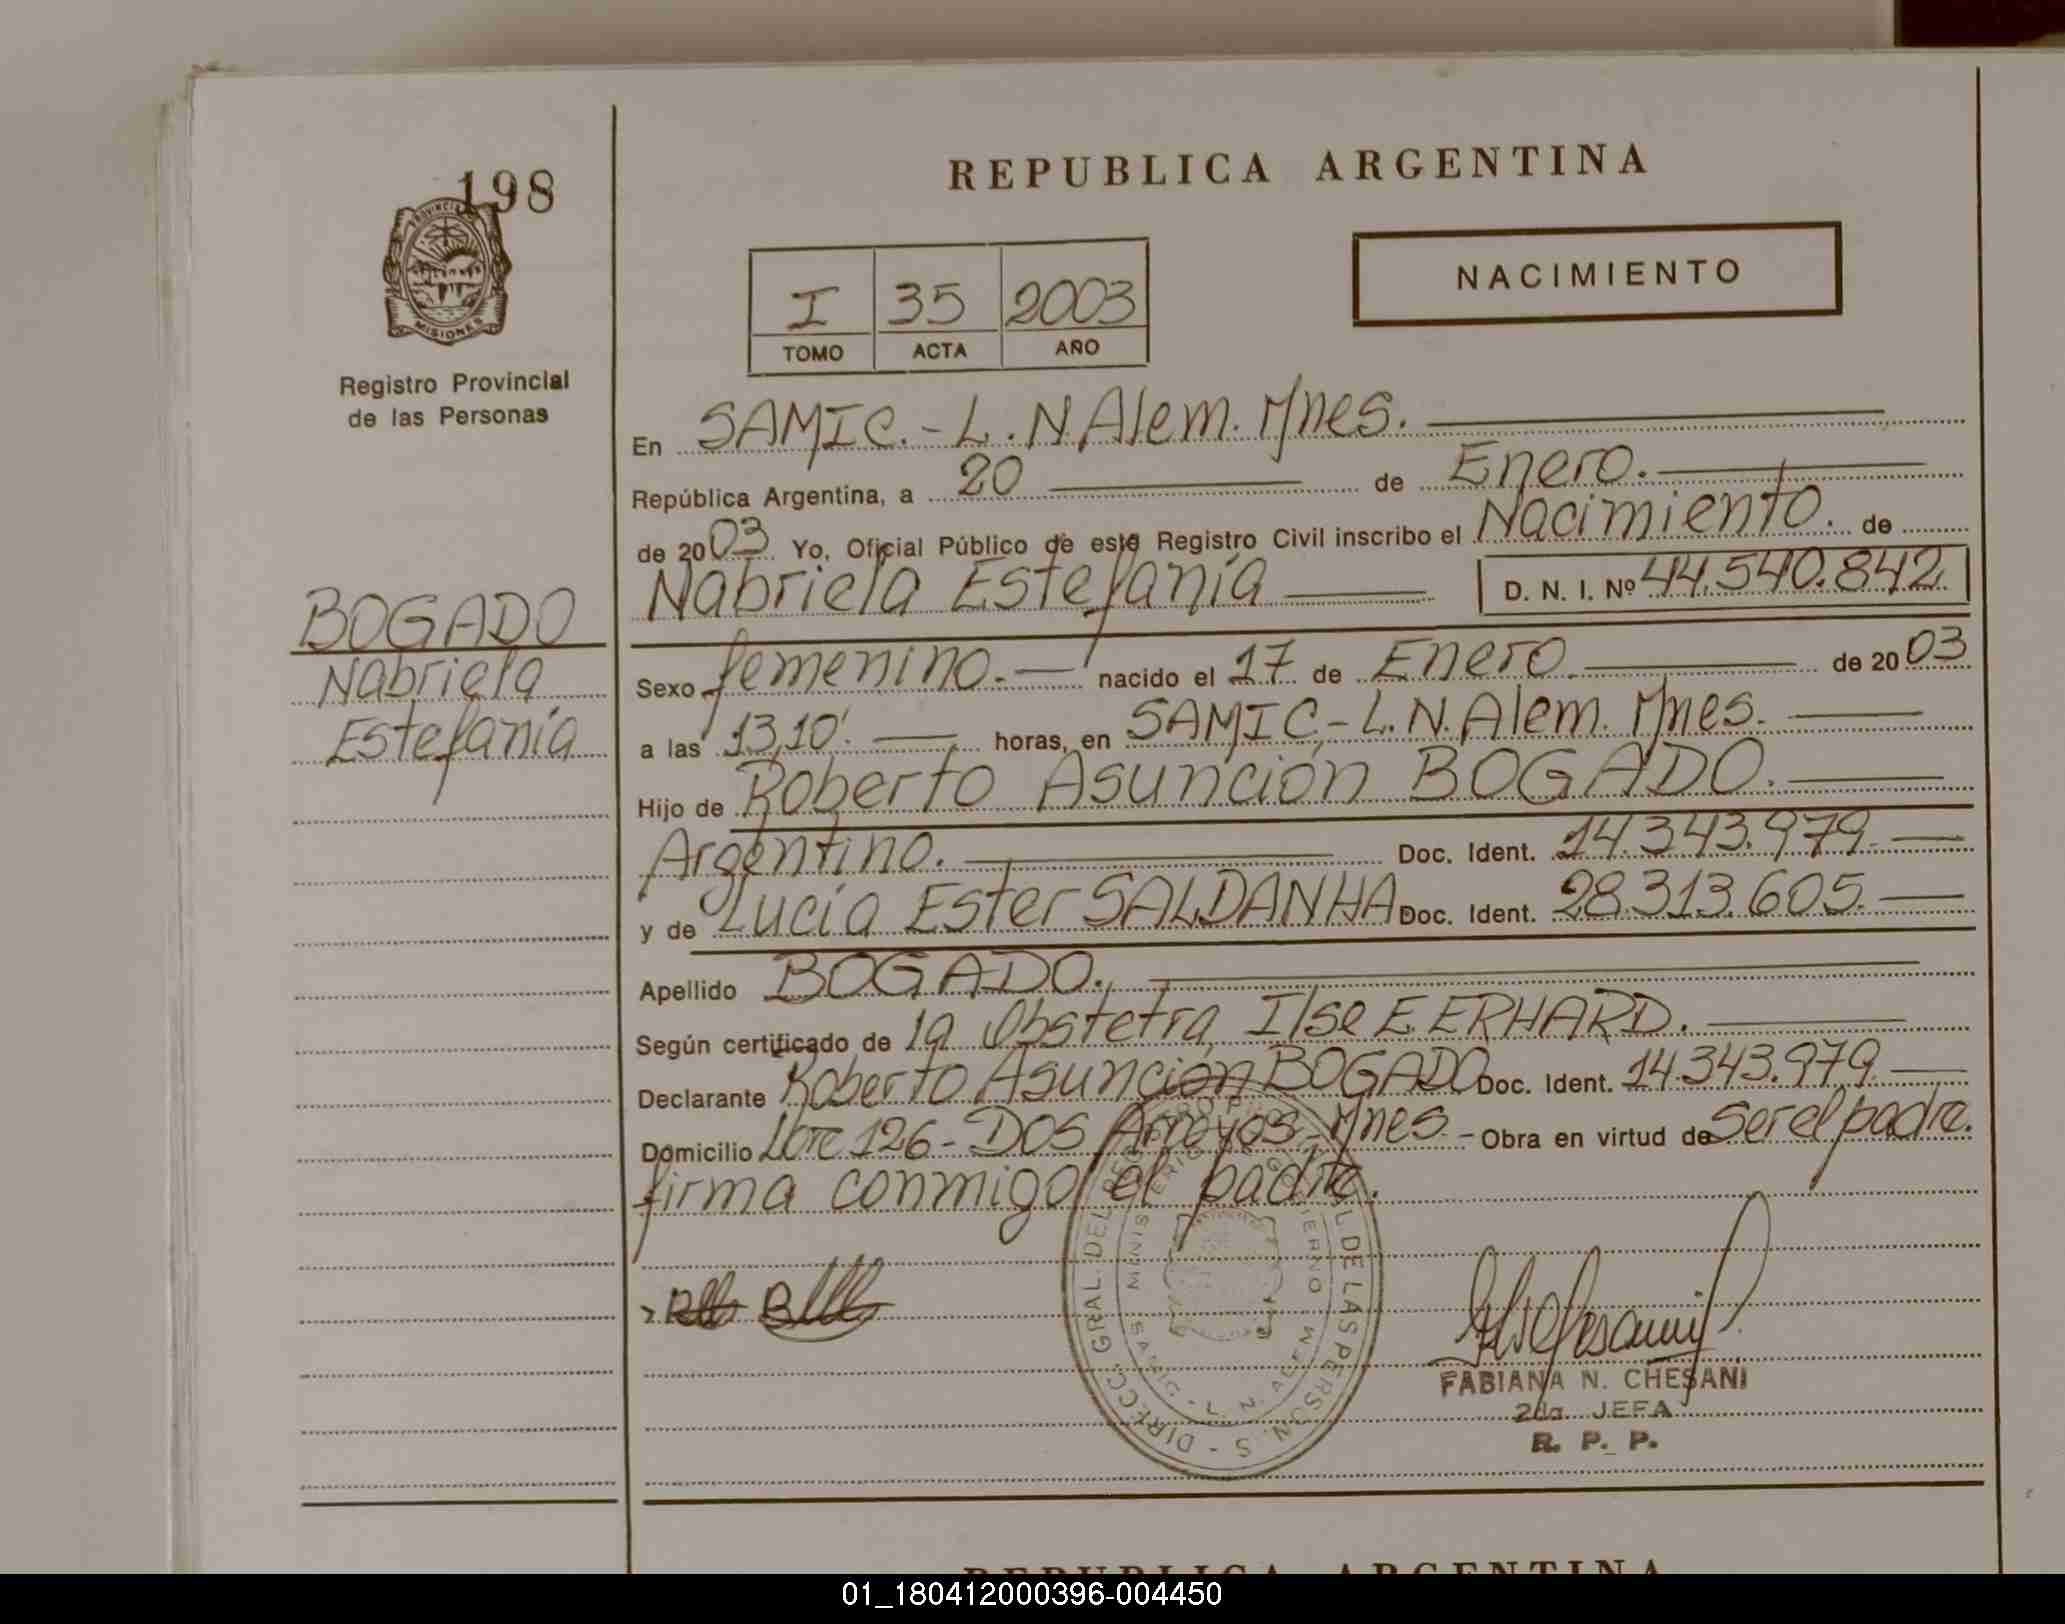 198
PROVINCIA
MISIONES
Registro Provincial
de las Personas
BOGADO
Nabriela
Estefanía
REPUBLICA ARGENTINA
NACIMIENTO
I 35 2003
TOMO ACTA AÑO
En SAMIC.- L.N.Alem. Mnes.
República Argentina, a 20 de Enero.
de 2003 Yo, Oficial Público de este Registro Civil inscribo el Nacimiento. de
Nabriela Estefanía D. N. I. Nº 44.540.842.
Sexo femenino.- nacido el 17 de Enero de 2003
a las 13,10'. horas, en SAMIC.- L.N. Alem. Mnes.
Hijo de Roberto Asunción BOGADO.
Argentino. Doc. Ident. 14.343.979.-
y de Lucía Ester SALDANHA Doc. Ident. 28.313.605.-
Apellido BOGADO.
Según certificado de la Obstetra Ilse E. ERHARD.
Declarante Roberto Asunción BOGADO Doc. Ident. 14.343.979.-
Domicilio Lote 126- DOS Arroyos- Mnes.- Obra en virtud de ser el padre.
firma conmigo el padre.
DIRECC. GRAL. DEL DE LAS PERSON S
MINISTERIO GOBIERNO
SAMIC - L. N. ALEM
FABIANA N. CHESANI
2da JEFA
R. P. P.
REPUBLICA ARGENTINA
01_180412000396-004450